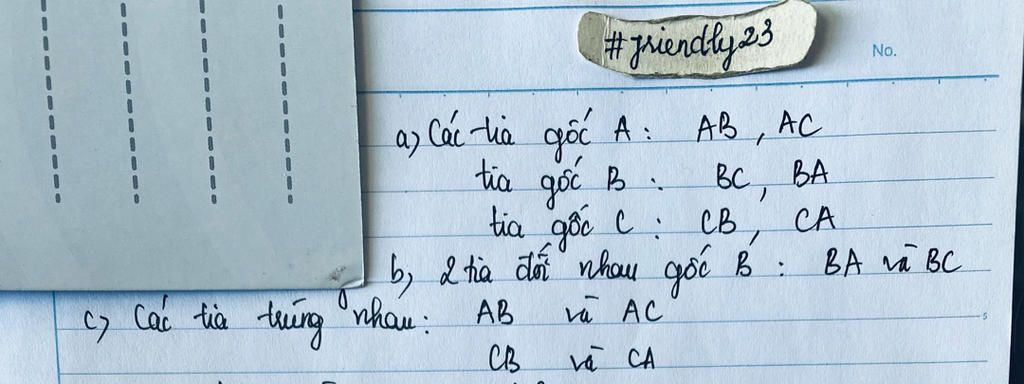 #friendly23
No.
a) Các tia gốc A : AB , AC
tia gốc B : BC, BA
tia gốc C : CB, CA
b, 2 tia đối nhau gốc B : BA và BC
c) Các tia trùng nhau : AB và AC
5
CB và CA